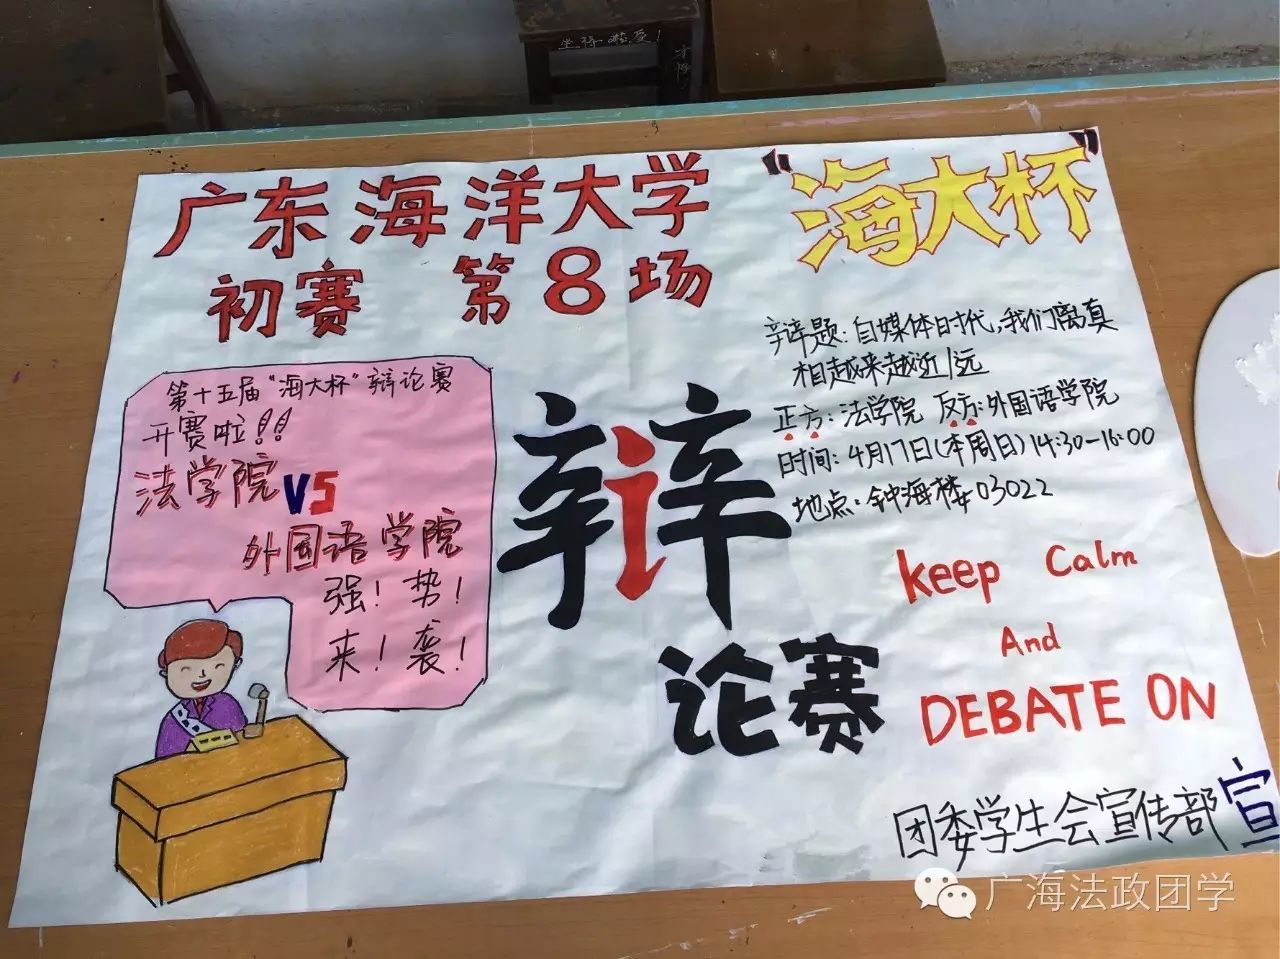 坐得端正！
广东海洋大学
"海大杯"
初赛 第8场
第十五届"海大杯"辩论赛
开赛啦！！
法学院 VS
外国语学院
强！势！
来！袭！
辩
论赛
辩题：自媒体时代，我们离真
相越来越近/远
正方：法学院 反方：外国语学院
时间：4月17日（本周日）14:30-16:00
地点：钟海楼03022
keep Calm
And
DEBATE ON
团委学生会宣传部宣
广海法政团学